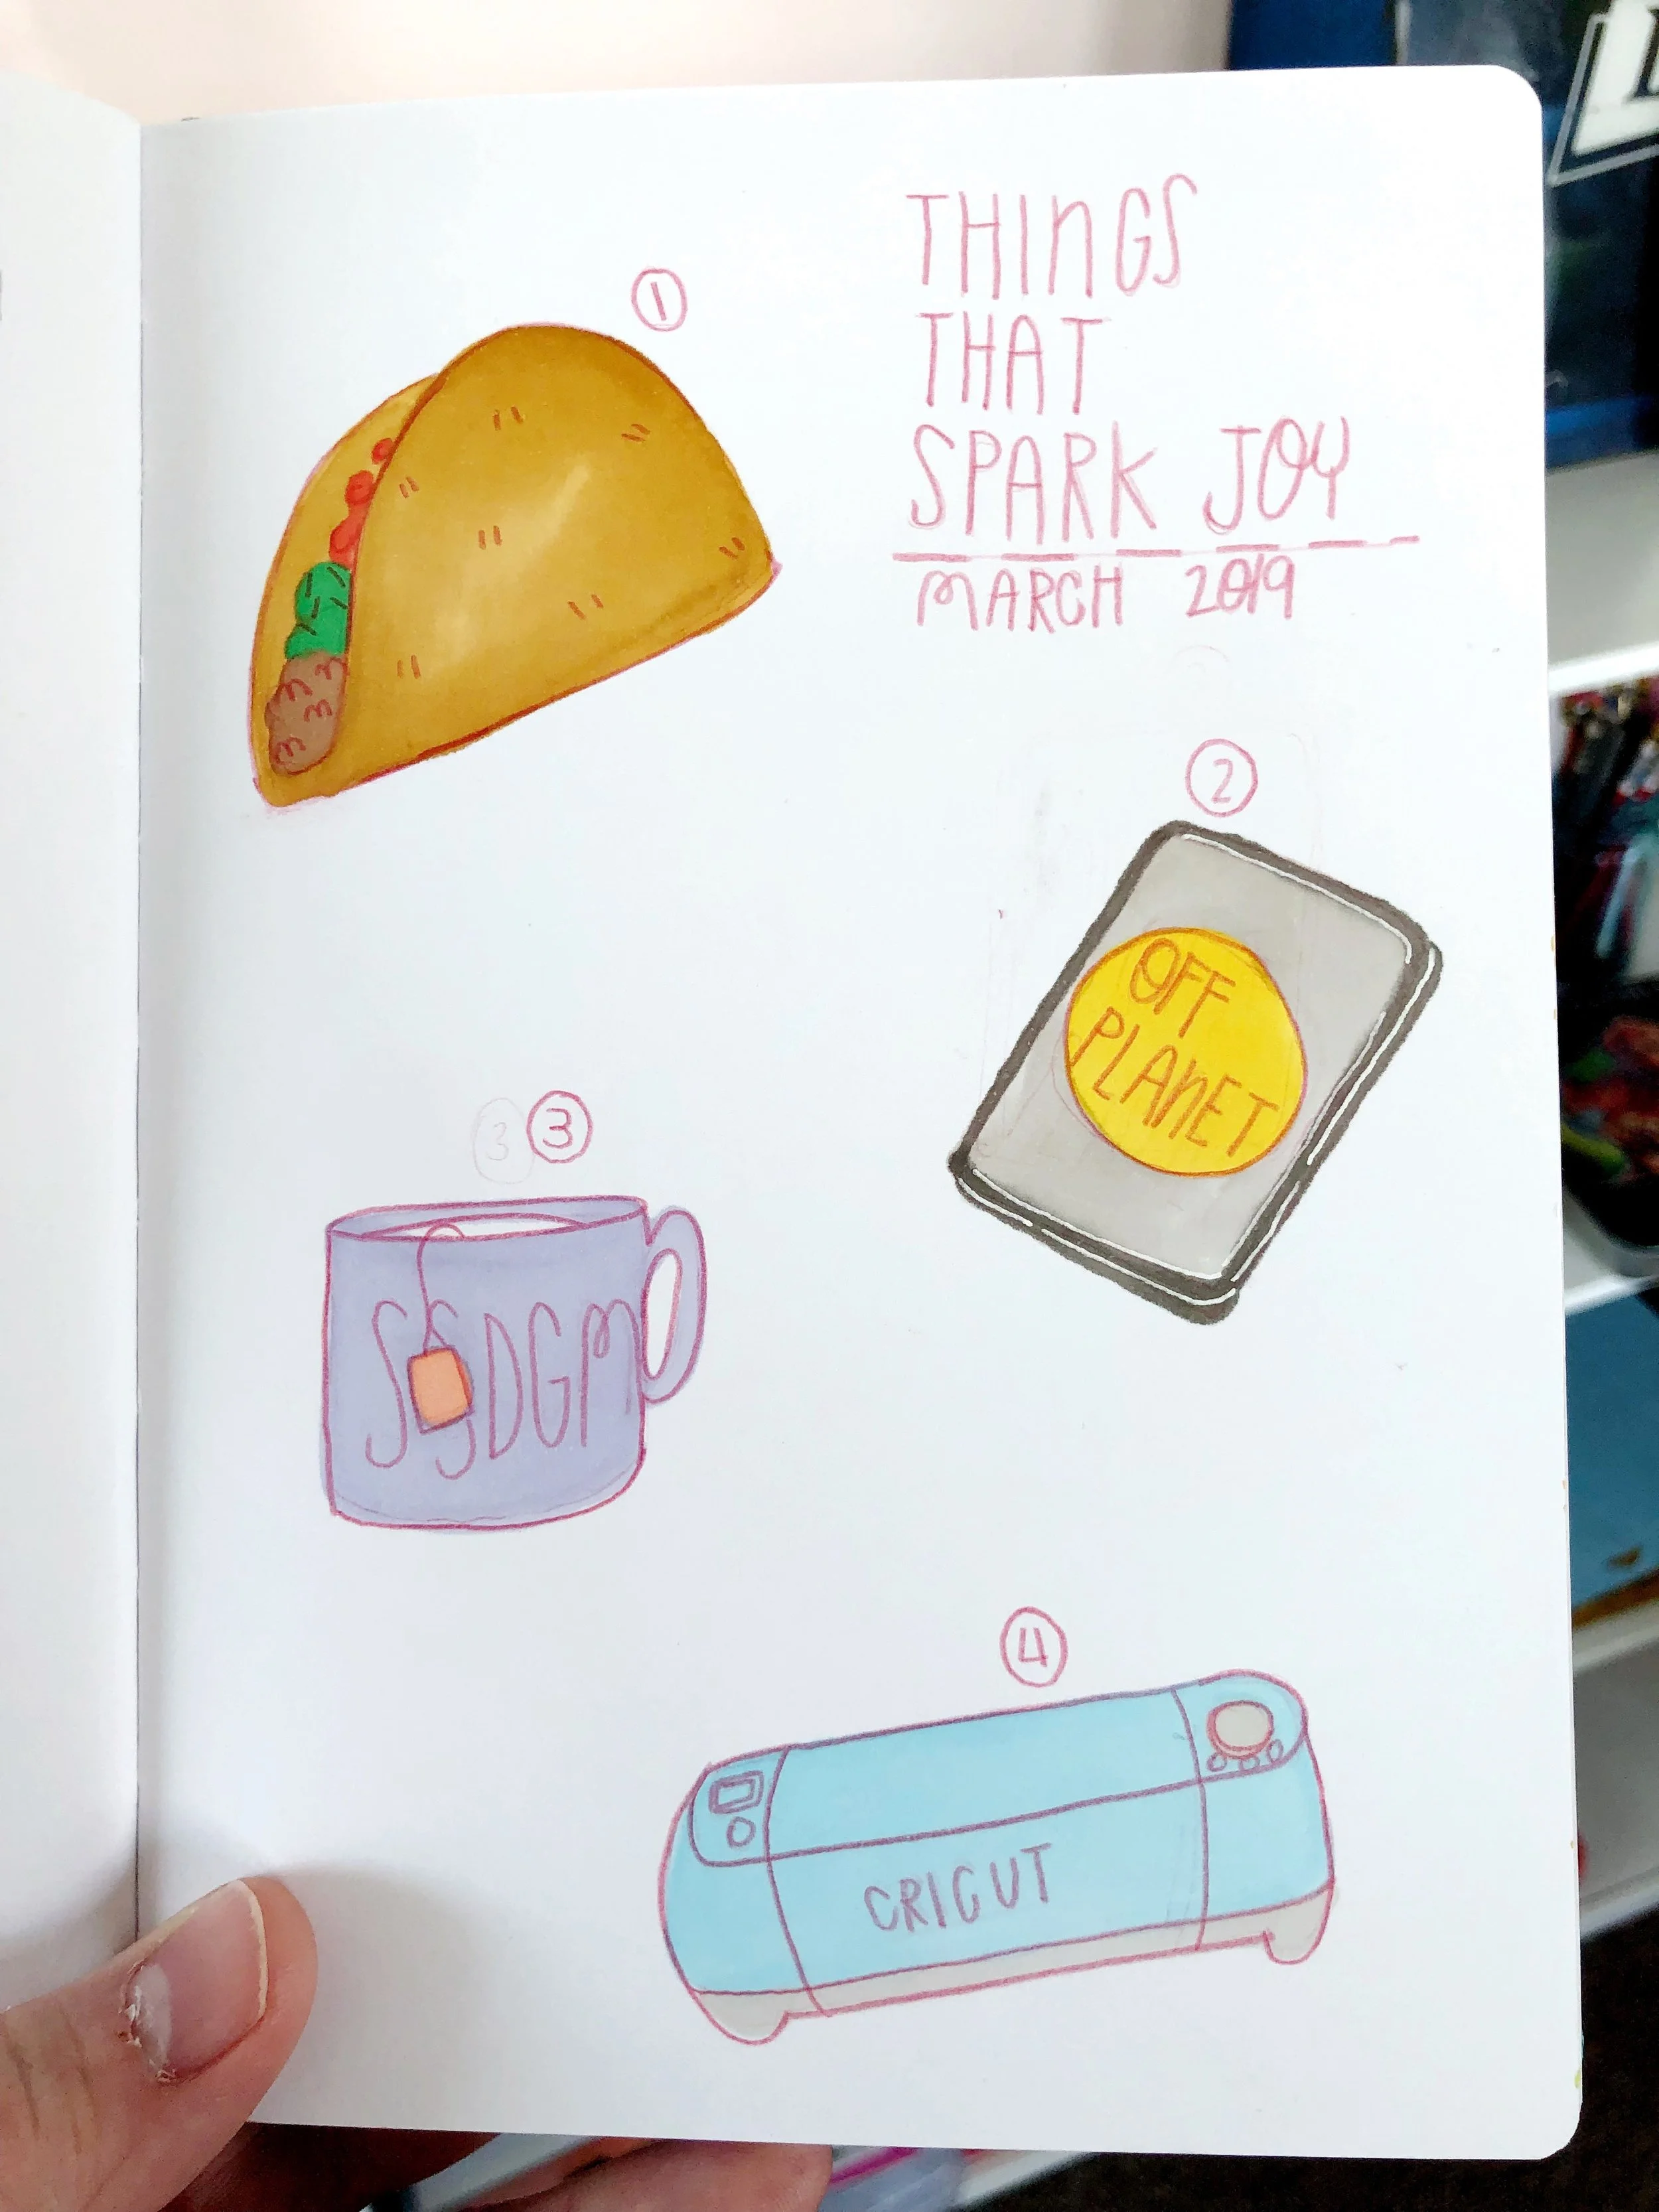 THINGS
THAT
SPARK JOY
MARCH 2019
1
2
OFF
PLANET
3
3
SSDGM
4
CRICUT